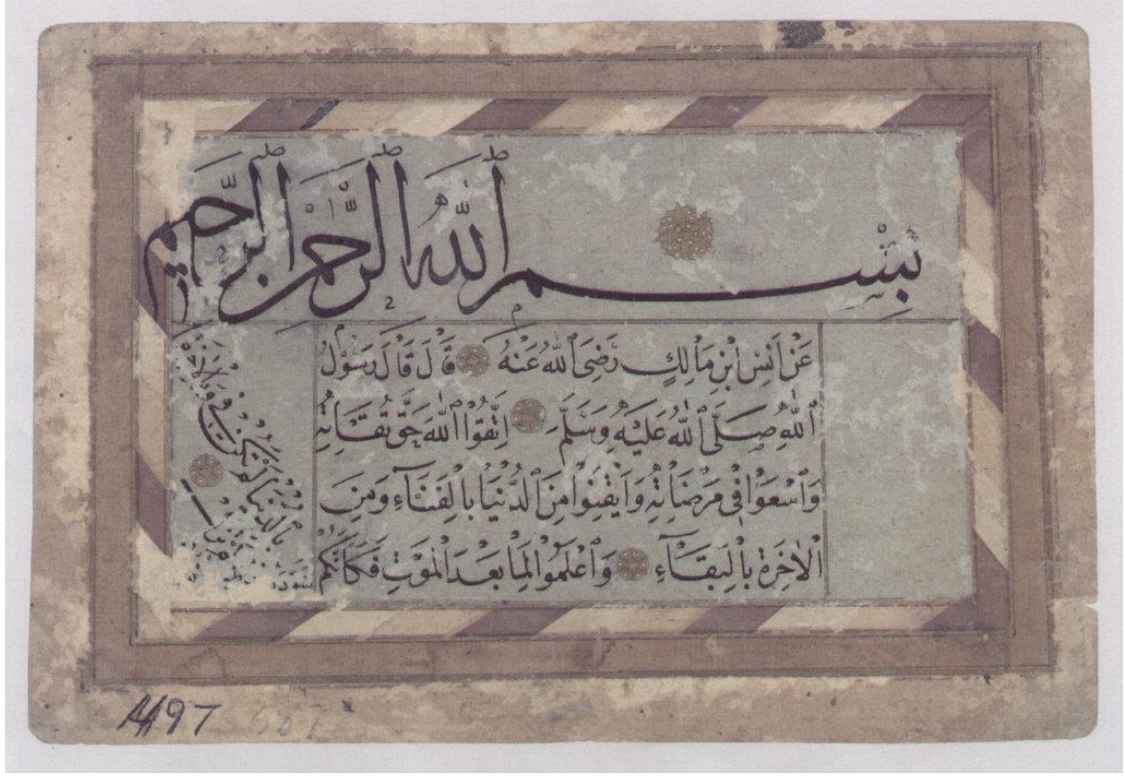 بِسْمِ ٱللهِ ٱلرَّحْمٰنِ ٱلرَّحِيمِ
عَنْ اَنَسِ ابْنِ مَالِكٍ رَضِىَ ٱللهُ عَنْهُ قَالَ قَالَ رَسُولُ
ٱللهِ صَلَّى ٱللهُ عَلَيْهِ وَسَلَّمَ اِتَّقُوا اللهَ حَقَّ تُقَاتِهِ
وَٱسْعَوْا فِى مَرْضَاتِهِ وَاَيْقِنُوا مِنَ الدُّنْيَا بِالْفَنَاءِ وَمِنَ
الْاٰخِرَةِ بِالْبَقَاءِ وَٱعْمَلُوا لِمَا بَعْدَ الْمَوْتِ فَكَاَنَّكُمْ
بِالدُّنْيَا لَمْ تَكُنْ وَبِالْاٰخِرَةِ
1497